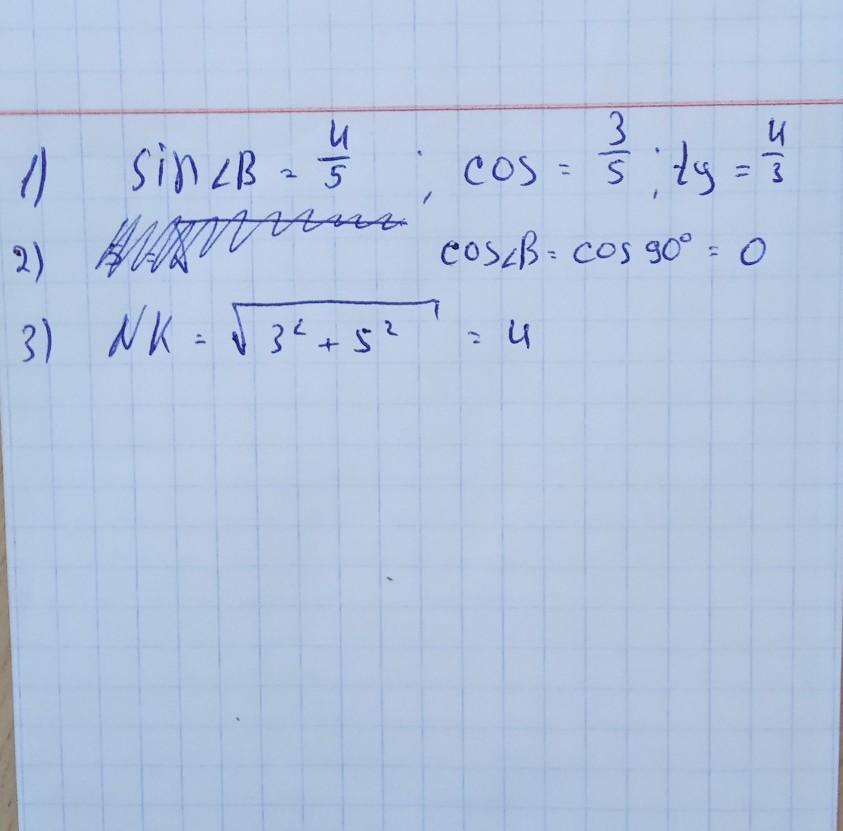 1) sin∠B = 4/5 ; cos = 3/5 ; tg = 4/3
2) cos∠B = cos 90° = 0
3) NK = √(3² + 5²) = 4